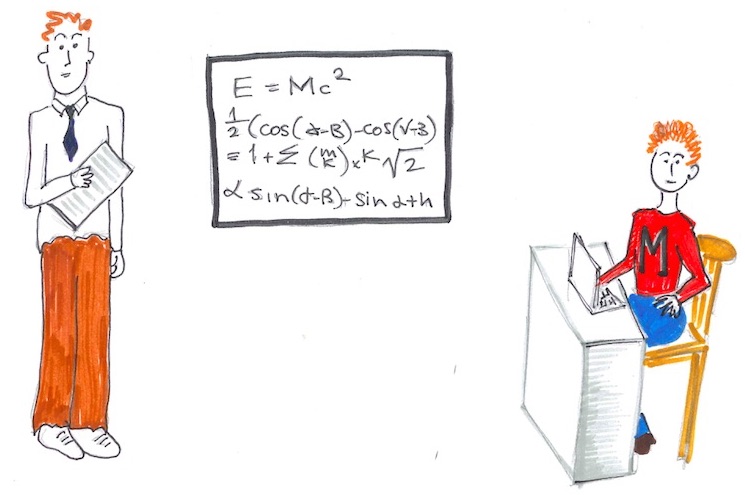 E = Mc²
½ (cos(α-B)-cos(√-3)
= 1 + Σ (m/k) x K √2
α sin(α-B)- sin α+h
M